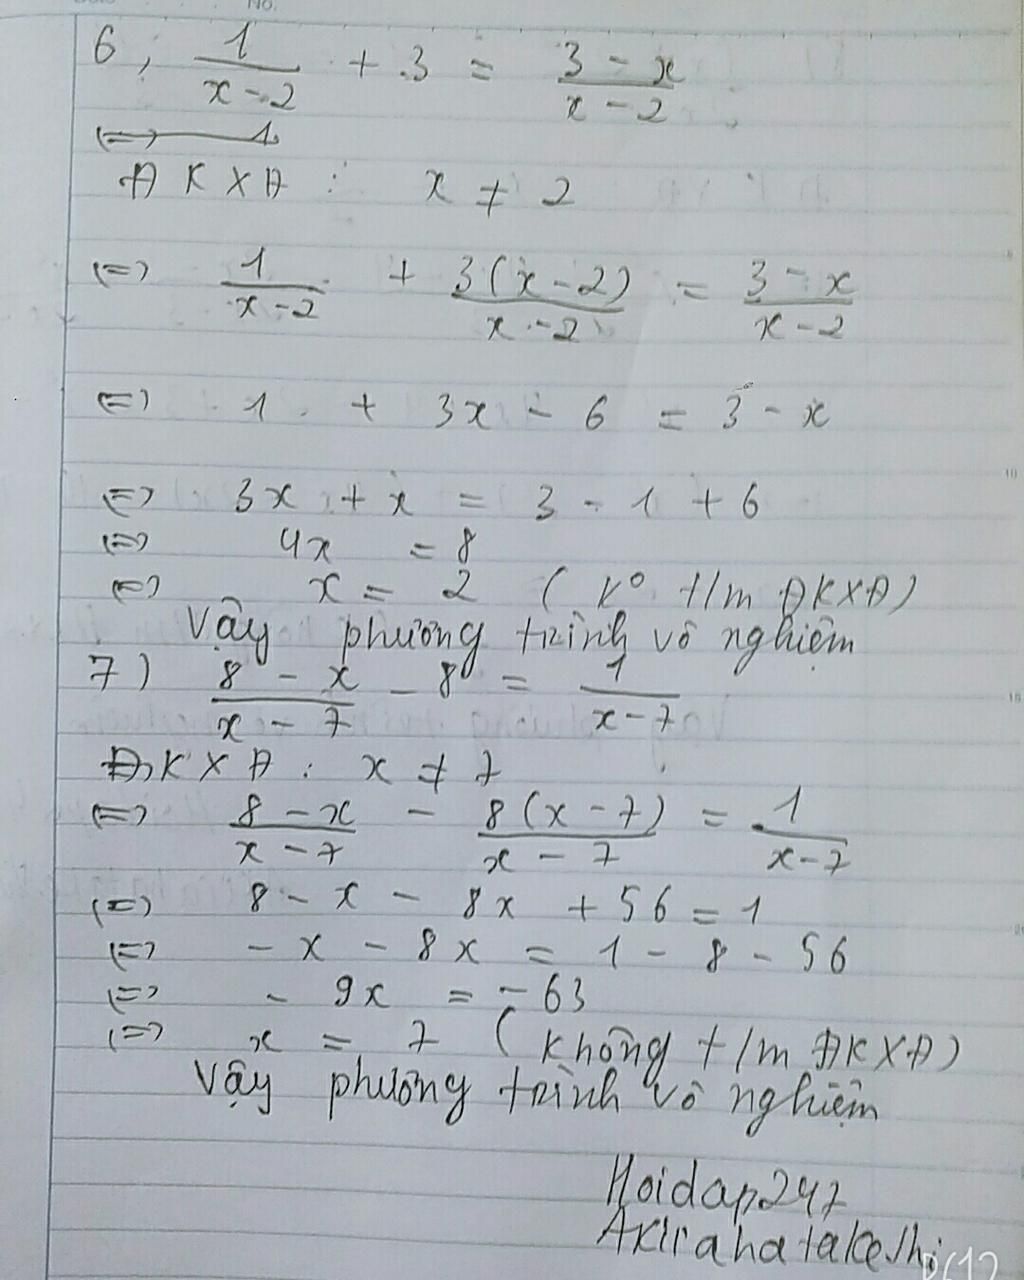 No.
6, 1/(x-2) + 3 = (3-x)/(x-2)
ĐKXĐ : x ≠ 2
(=) 1/(x-2) + 3(x-2)/(x-2) = (3-x)/(x-2)
(=) 1 + 3x - 6 = 3 - x
(=) 3x + x = 3 - 1 + 6
(=) 4x = 8
(=) x = 2 (ko t/m ĐKXĐ)
Vậy phương trình vô nghiệm
7) (8-x)/(x-7) - 8 = 1/(x-7)
ĐKXĐ : x ≠ 7
(=) (8-x)/(x-7) - 8(x-7)/(x-7) = 1/(x-7)
(=) 8 - x - 8x + 56 = 1
(=) - x - 8x = 1 - 8 - 56
(=) - 9x = - 63
(=) x = 7 (không t/m ĐKXĐ)
Vậy phương trình vô nghiệm
Hoidap247
Akirahatakeshi